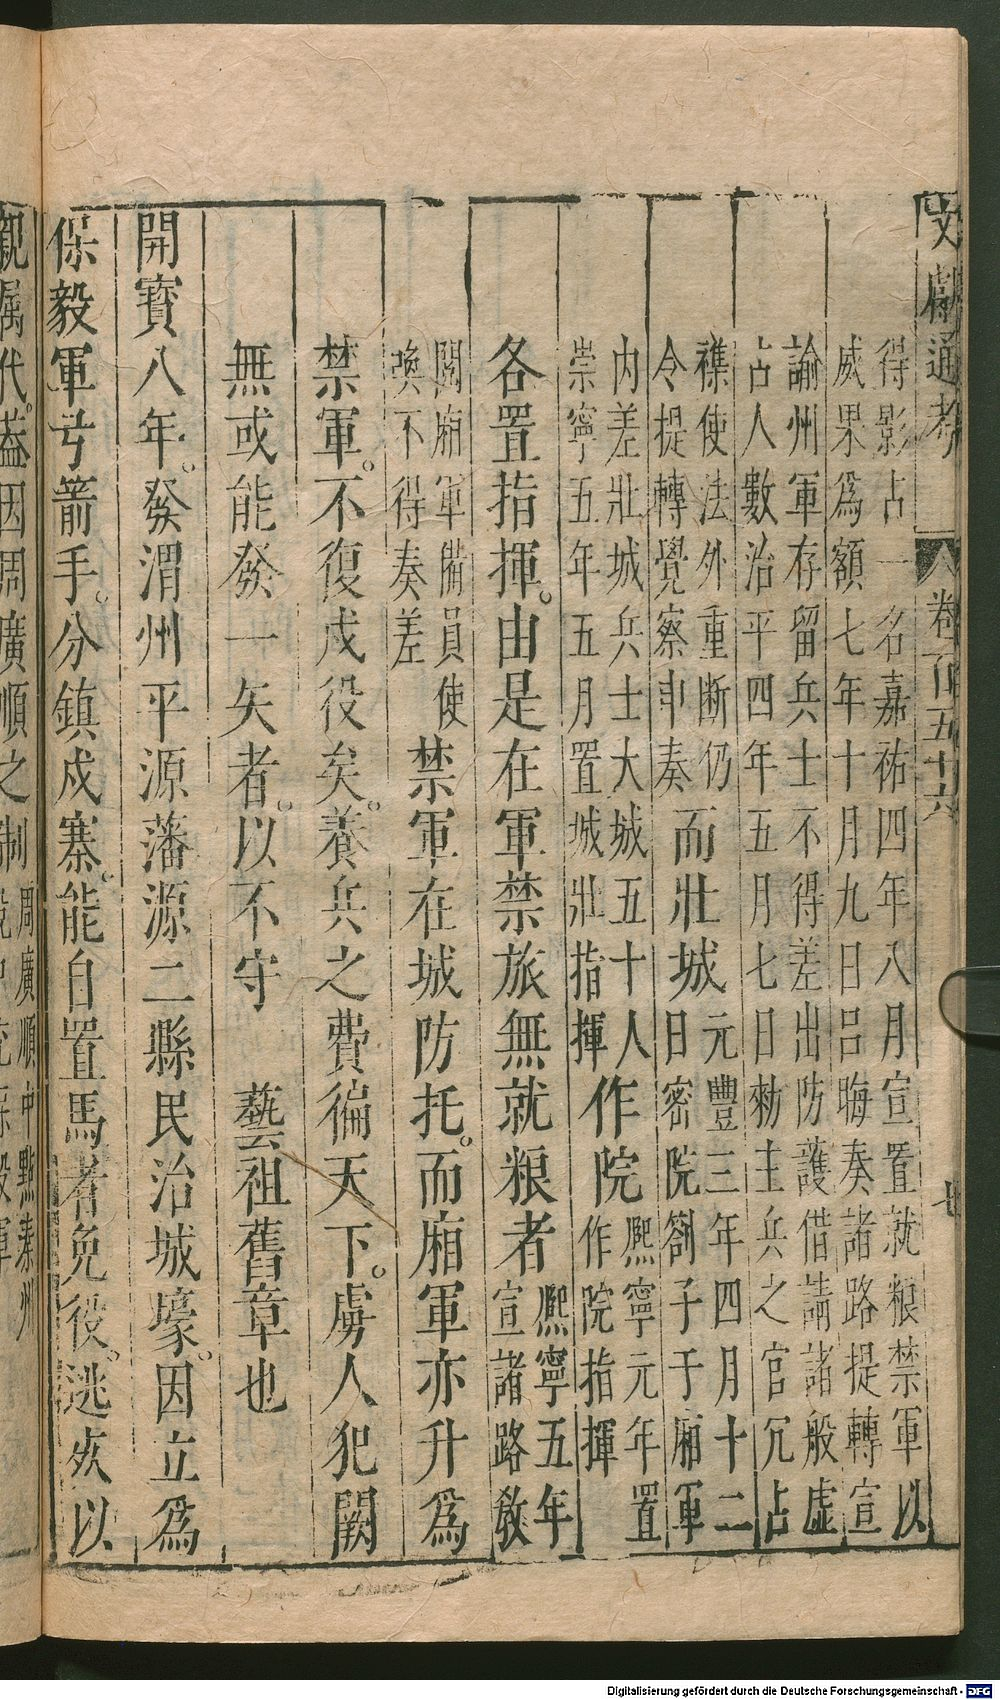 文獻通考 卷一百五十六 七
得影占一名嘉祐四年八月宣置就粮禁軍以
威果爲額七年十月九日呂晦奏諸路提轉宣
諭州軍存留兵士不得差出防護借請諸般虛
占人數治平四年五月七日勑主兵之官冗占
襍使法外重断仍
令提轉覺察申奏
而壯城
元豐三年四月十二
日密院劄子于廂軍
内差壯城兵士大城五十人
崇寧五年五月置城壯指揮
作院
熈寧元年置
作院指揮
各置指揮。由是在軍禁旅無就粮者
熈寧五年
宣諸路敎
閱廂軍備員使
喚不得奏差
禁軍在城防托。而廂軍亦升爲
禁軍。不復戍役矣。養兵之費徧天下。虜人犯闕
無或能發一矢者。以不守 藝祖舊章也
開寶八年。發渭州平源藩源二縣民治城壕。因立爲
保毅軍弓箭手。分鎮戍寨。能自置馬者免役。逃疾以
親属代。葢因周廣順之制
周廣順中點秦州
Digitalisierung gefördert durch die Deutsche Forschungsgemeinschaft - DFG